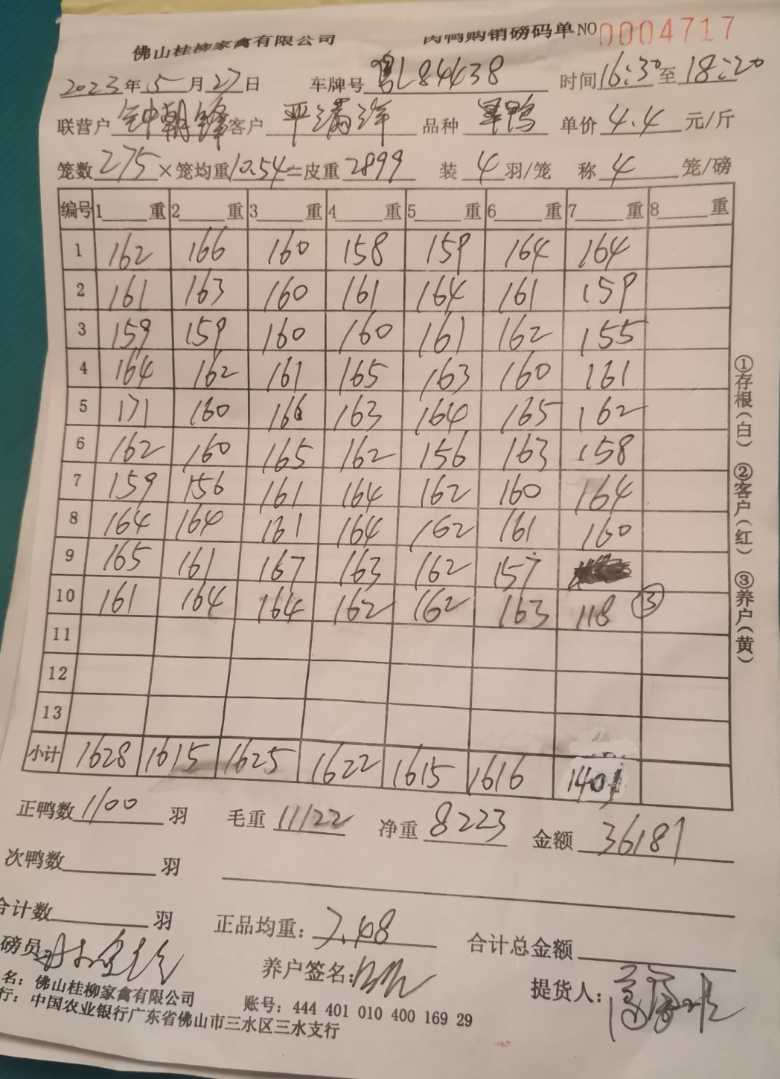 佛山桂柳家禽有限公司 肉鸭购销磅码单 NO 0004717
2023年 5 月 27 日 车牌号 粤L84438 时间 16:30 至 18:20
联营户 钟朝锋 客户 严满洋 品种 单价 4.4 元/斤
笼数 275 ×笼均重 10.54 =皮重 2899 装 4 羽/笼 称 4 笼/磅
编号 1 重 2 重 3 重 4 重 5 重 6 重 7 重 8 重
1 162 166 160 158 159 164 164
2 161 163 160 161 164 161 159
3 159 159 160 160 161 162 155
4 164 162 161 165 163 160 161
5 171 160 166 163 164 165 162
6 162 160 165 162 156 163 158
7 159 156 161 164 162 160 164
8 164 164 161 164 162 161 160
9 165 161 167 163 162 157
10 161 164 164 162 162 163 118 ③
11
12
13
小计 1628 1615 1625 1622 1615 1616 1401
①存根(白) ②客户(红) ③养户(黄)
正鸭数 1100 羽 毛重 11122 净重 8223 金额 36181
次鸭数 羽
合计数 羽 正品均重: 7.48 合计总金额
磅员 养户签名: 提货人:
名: 佛山桂柳家禽有限公司 账号: 444 401 010 400 169 29
行: 中国农业银行广东省佛山市三水区三水支行